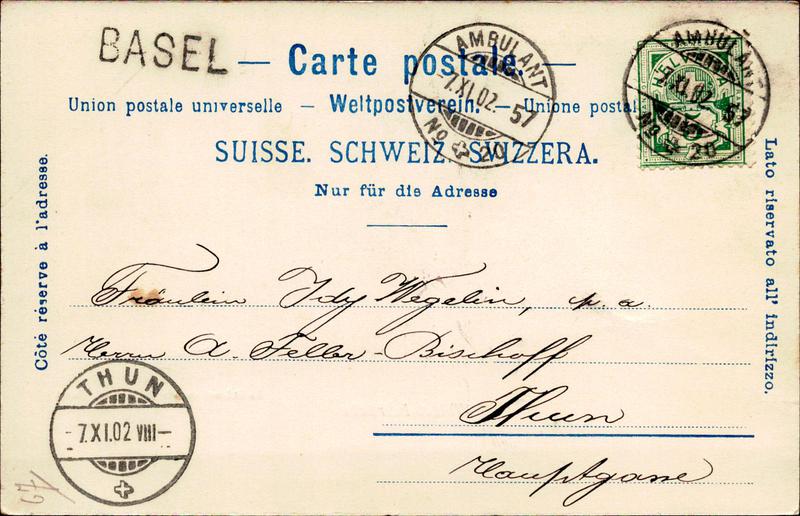 BASEL
— Carte postale. —
Union postale universelle — Weltpostverein. — Unione postal
SUISSE. SCHWEIZ. SVIZZERA.
Nur für die Adresse
AMBULANT
7.XI.02.-57
No 20
HELVETIA
5
AMBULANT
7.XI.02.-57
No 20
Côté réservé à l'adresse.
Lato riservato all' indirizzo.
Fräulein Idy Wegelin, p. a.
Herrn A. Feller-Bischoff
Thun
Hauptgasse
THUN
-7.XI.02 VIII-
67